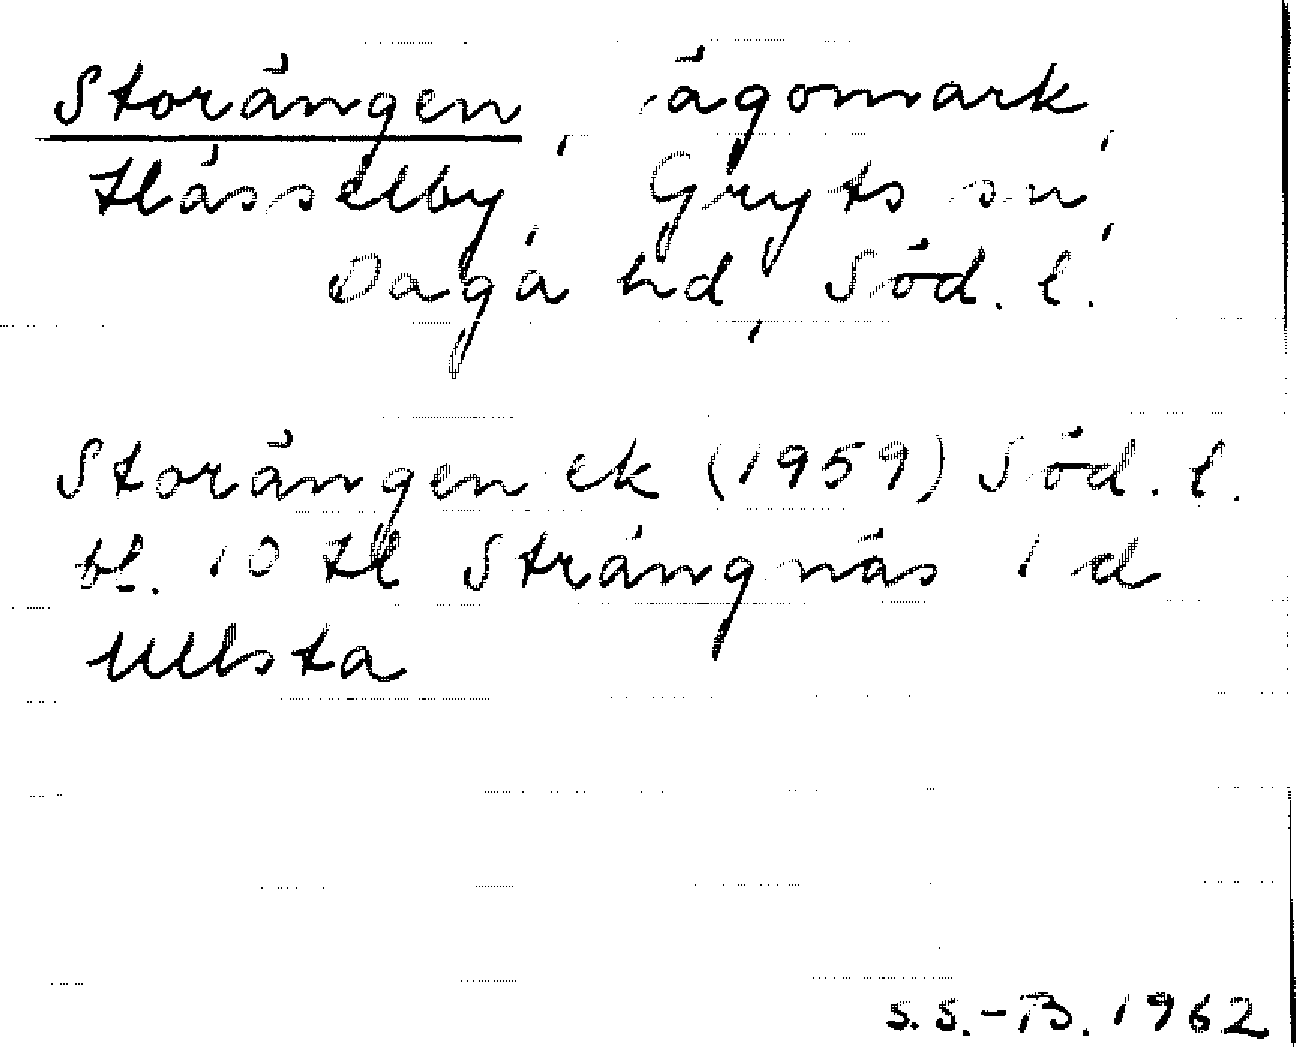 Storängen, ägomark,
Hässelby, Gryts sn,
Daga hd, Söd. l.
Storängen ek (1959) Söd. l.
bl. 10 H Strängnäs 1 d
Ullsta
S.S.-B. 1962